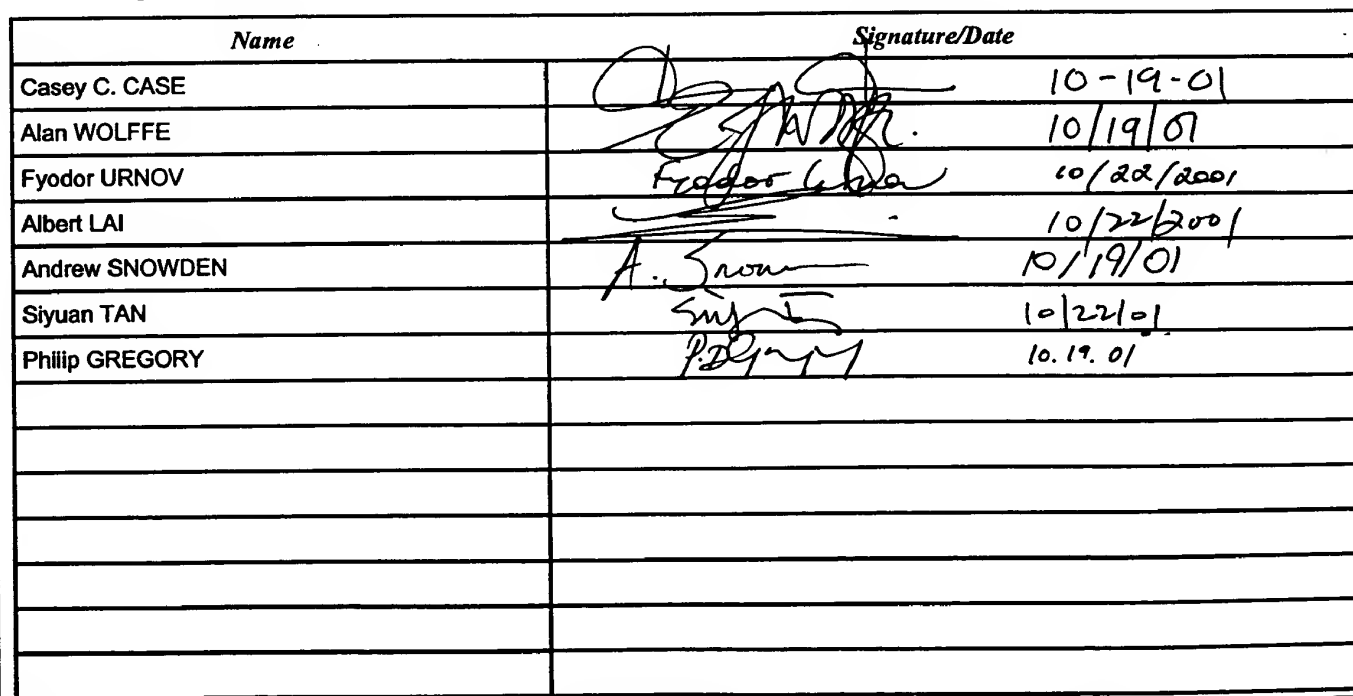 Name Signature/Date
Casey C. CASE 10-19-01
Alan WOLFFE 10/19/01
Fyodor URNOV Fyodor 10/22/2001
Albert LAI 10/22/2001
Andrew SNOWDEN A. Snow 10/19/01
Siyuan TAN 10/22/01
Philip GREGORY 10.19.01